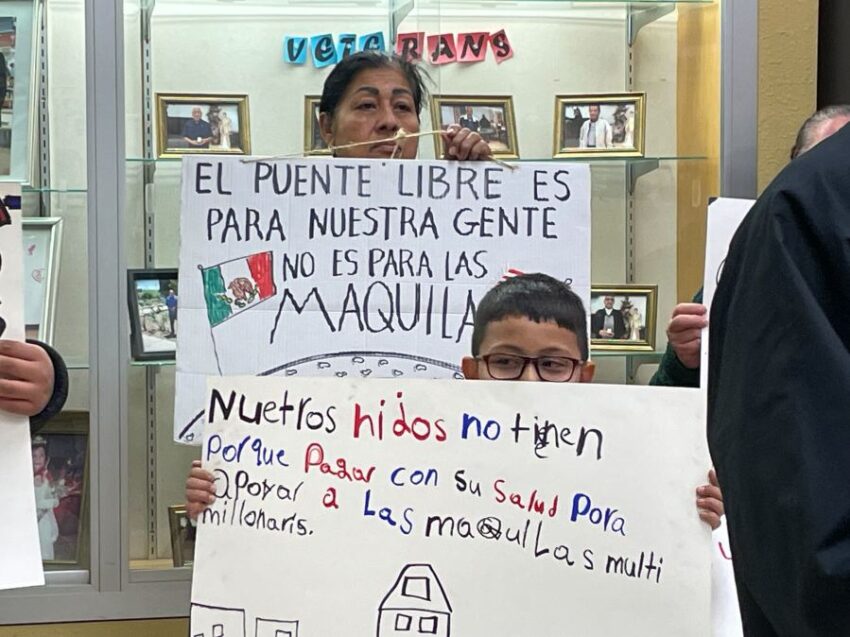 VETERANS
EL PUENTE LIBRE ES
PARA NUESTRA GENTE
NO ES PARA LAS
MAQUILA
Nuetros niños no tienen
Porque Pagar con su Salud Pora
apoyar a Las maquilas multi
millonaris.